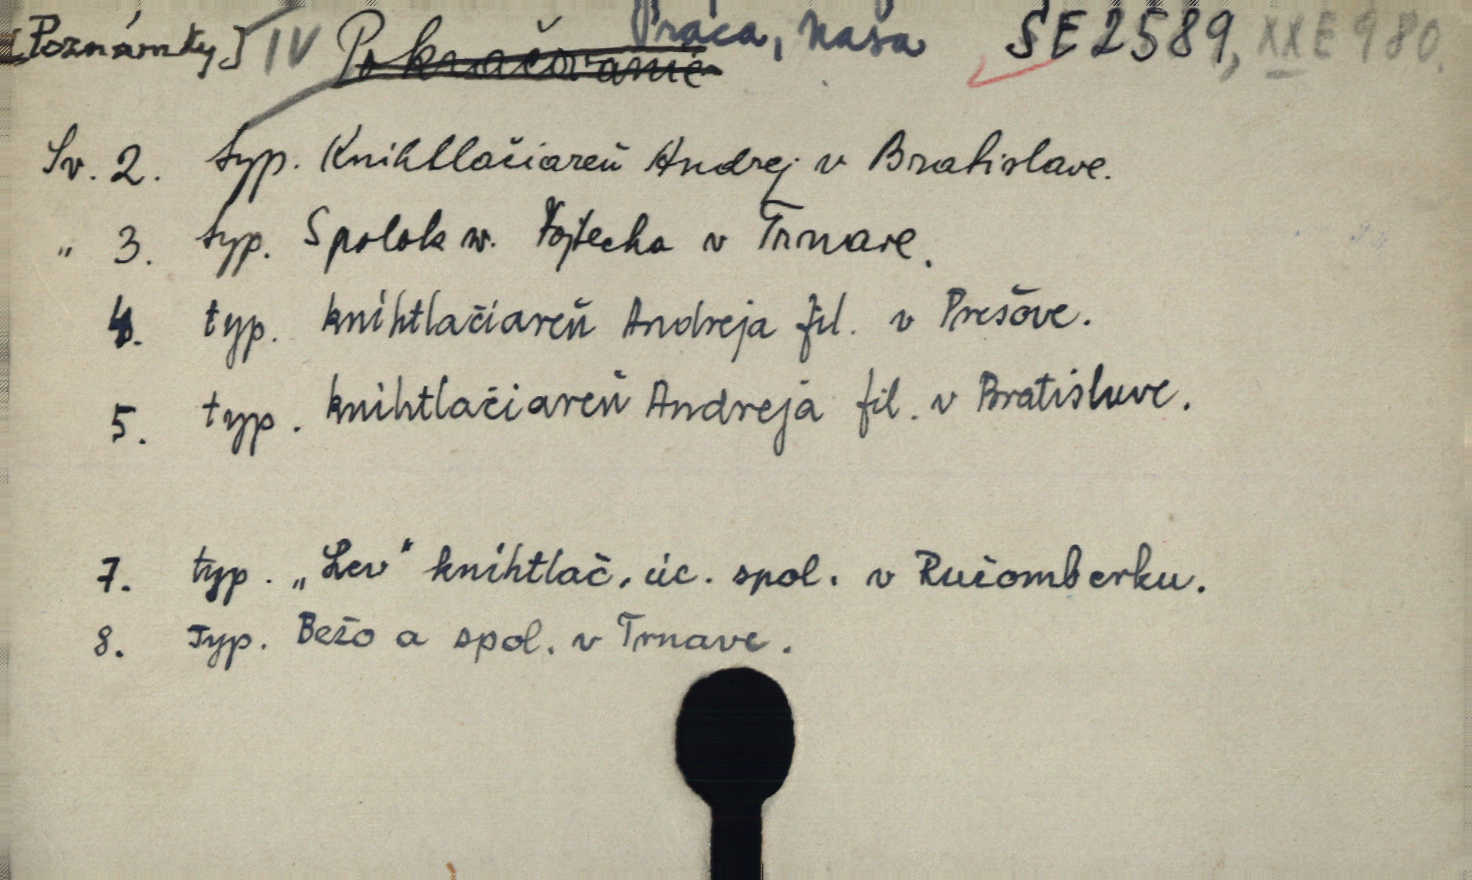 [Poznámky] IV Pokračovanie Práca, Naša SE 2589, XX E 980.
Sv. 2. typ. Knihtlačiareň Andrej v Bratislave.
" 3. typ. Spolok sv. Vojtecha v Trnave.
4. typ. kníhtlačiareň Andreja fil. v Prešove.
5. typ. kníhtlačiareň Andreja fil. v Bratislave.
7. typ. „Lev" kníhtlač. úč. spol. v Ružomberku.
8. Typ. Bežo a spol. v Trnave.